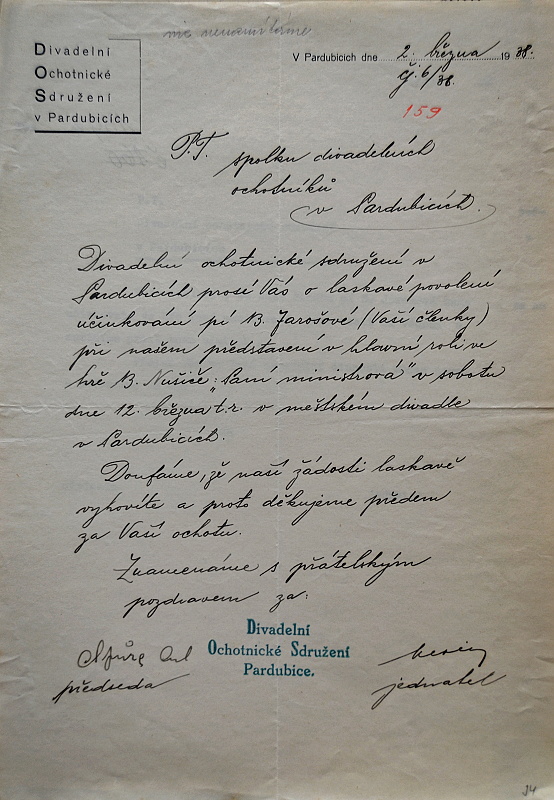 nic nenamítáme
Divadelní
Ochotnické
Sdružení
v Pardubicích
V Pardubicích dne 2. března 1938.
čj. 6/38.
159
P.T. spolku divadelních
ochotníků
v Pardubicích.
Divadelní ochotnické sdružení v
Pardubicích prosí Vás o laskavé povolení
účinkování pí B. Jarošové (Vaší členky)
při našem představení v hlavní roli ve
hře B. Nušiče: „Paní ministrová" v sobotu
dne 12. března t.r. v městském divadle
v Pardubicích.
Doufáme, že naší žádosti laskavě
vyhovíte a proto děkujeme předem
za Vaší ochotu.
Znamenáme s přátelským
pozdravem za:
Divadelní
Ochotnické Sdružení
Pardubice.
předseda
jednatel